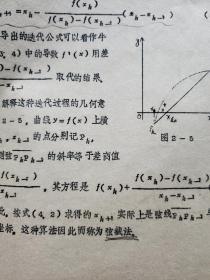 x_{k+1}=x_k - \frac{f(x_k)}{f(x_k)-f(x_{k-1})}(x_k-x_{k-1}) (
导出的迭代公式可以看作牛
4)中的导数f'(x)用差
\frac{)-f(x_{k-1})}{x_{k-1}} 取代的结果.
解释这种迭代过程的几何意
2-5, 曲线y=f(x)上横
x_{k-1}的点分别记P_k,
则弦线P_kP_{k-1}的斜率等于差商值
y
0
图2-5
\frac{x_{k-1})}{-1}, 其方程是 f(x_k)+\frac{f(x_k)-f(x_{k-1})}{x_k-x_{k-1}}
此, 按式(4, 2)求得的x_{k+1}实际上是弦线P_kP_{k-1}与
坐标, 这种算法因此而称为弦截法.